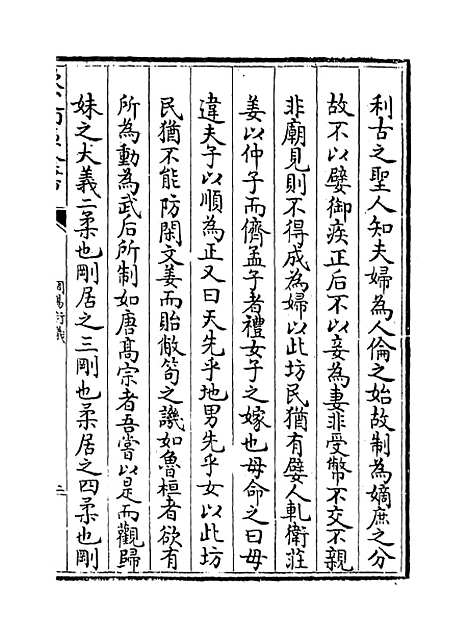 利古之聖人知夫婦為人倫之始故制為嫡庶之分
故不以嬖御疾正后不以妾為妻非受幣不交不親
非廟見則不得成為婦以此坊民猶有嬖人軋衛莊
姜以仲子而儕孟子者禮女子之嫁也母命之曰毋
違夫子以順為正又曰天先乎地男先乎女以此坊
民猶不能防閑文姜而貽敝笱之譏如魯桓者欲有
所為動為武后所制如唐髙宗者吾嘗以是而觀歸
妹之大義二柔也剛居之三剛也柔居之四柔也剛
周易衍義